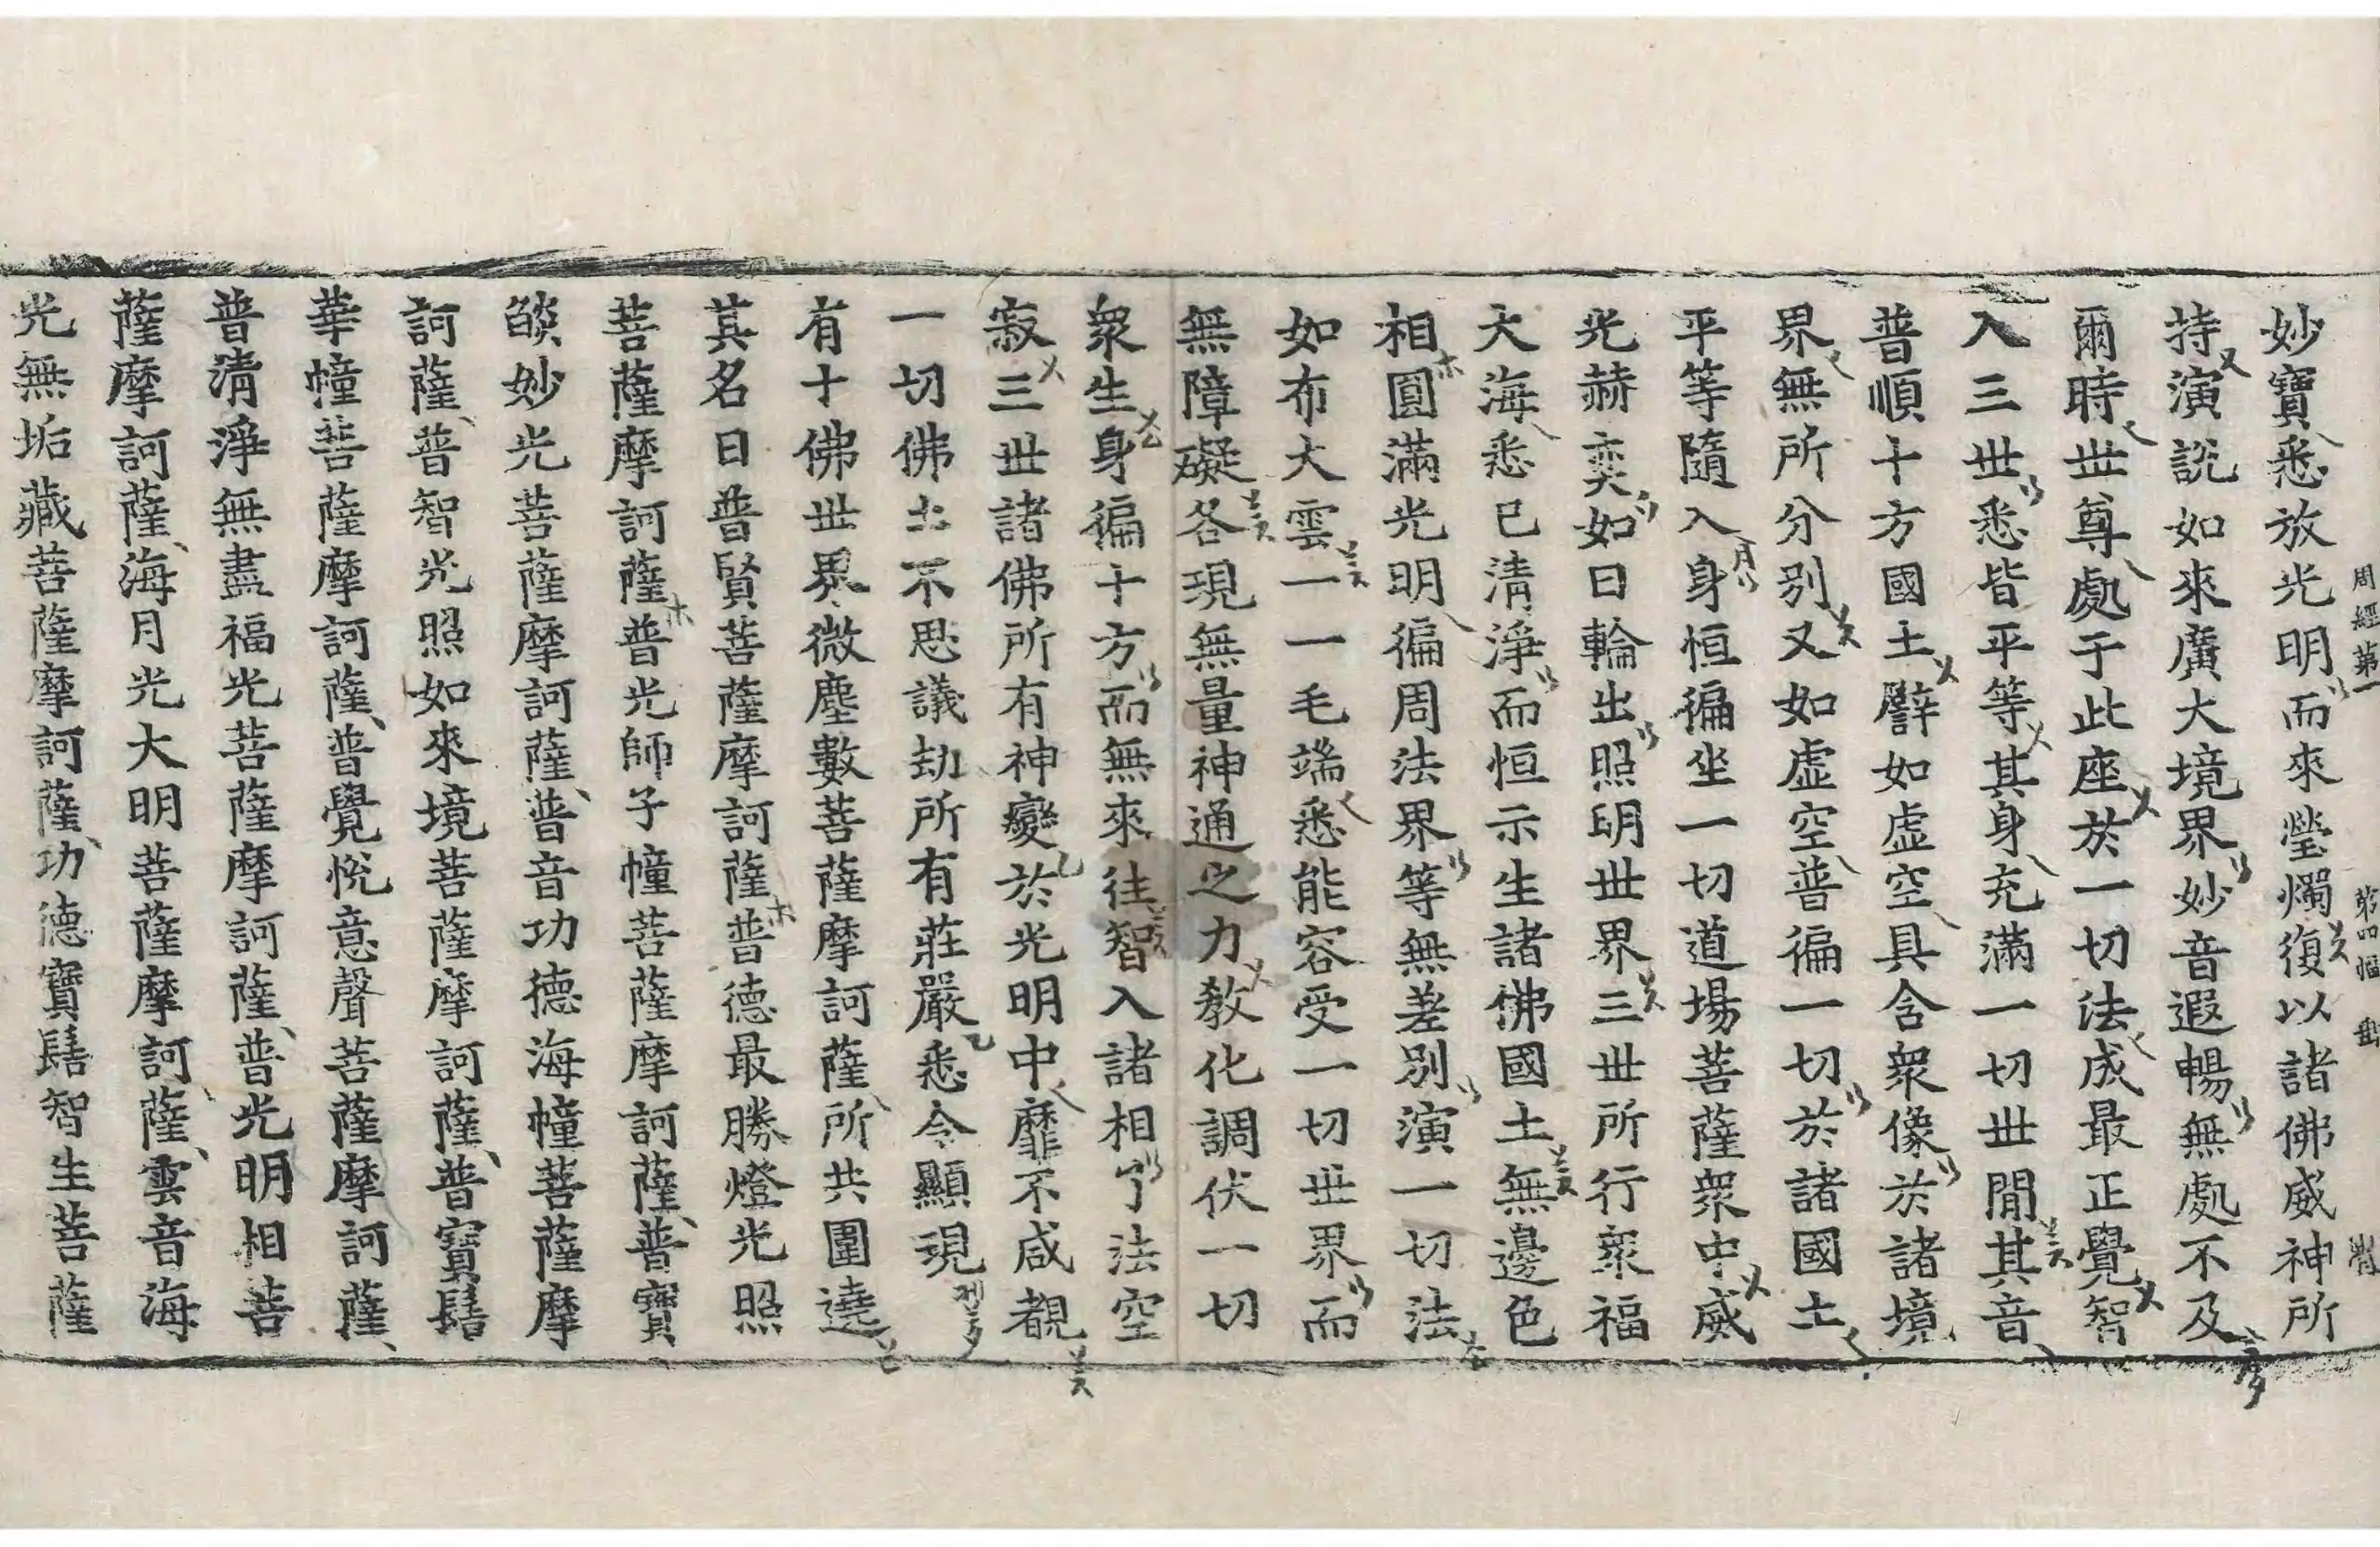 周經第一 第四幅
妙寶悉放光明而來瑩燭復以諸佛威神所
持演說如來廣大境界妙音遐暢無處不及
爾時世尊處于此座於一切法成最正覺智
入三世悉皆平等其身充滿一切世閒其音
普順十方國土譬如虛空具含衆像於諸境
界無所分別又如虛空普徧一切於諸國土
平等隨入身恒徧坐一切道場菩薩衆中威
光赫奕如日輪出照明世界三世所行衆福
大海悉已清淨而恒示生諸佛國土無邊色
相圓滿光明徧周法界等無差別演一切法
如布大雲一一毛端悉能容受一切世界而
無障礙各現無量神通之力教化調伏一切
衆生身徧十方而無來往智入諸相了法空
寂三世諸佛所有神變於光明中靡不咸覩
一切佛土不思議劫所有莊嚴悉令顯現
有十佛世界微塵數菩薩摩訶薩所共圍遶
其名曰普賢菩薩摩訶薩普德最勝燈光照
菩薩摩訶薩普光師子幢菩薩摩訶薩普寶
燄妙光菩薩摩訶薩普音功德海幢菩薩摩
訶薩普智光照如來境菩薩摩訶薩普寶髻
華幢菩薩摩訶薩普覺悅意聲菩薩摩訶薩
普清淨無盡福光菩薩摩訶薩普光明相菩
薩摩訶薩海月光大明菩薩摩訶薩雲音海
光無垢藏菩薩摩訶薩功德寶髻智生菩薩